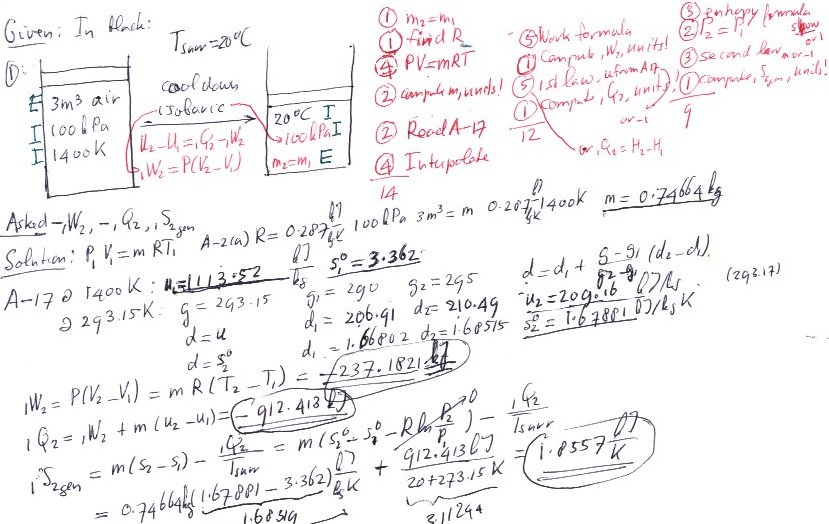 Given: In black:
T_surr = 20°C
①:
E 3m³ air
I 100kPa
I 1400K
cool down
isobaric
u₂-u₁ = ₁q₂ - ₁w₂
₁W₂ = P(V₂-V₁)
20°C I
100kPa I
m₂=m₁ E
① m₂=m₁
① find R
④ PV=mRT
② compute m, units!
② Read A-17
④ Interpolate
14
⑤ Work formula
① Compute, W₂, units!
⑤ 1st law, u from A17
① compute, Q₂, units!
or -1
12
or, ₁Q₂ = H₂-H₁
③ enthalpy formula
② P₂=P₁
or -1
③ second law
① compute, S_gen, units!
9
Asked - ₁W₂, -, ₁Q₂, ₁S₂gen
Solution: P₁V₁=mRT₁ A-2(a) R=0.287 kJ/kgK 100kPa 3m³ = m 0.287 kJ/kgK 1400K m=0.74664kg
A-17 @ 1400K: u₁=1113.52 kJ/kg s₁°=3.362
@ 293.15K: g=293.15 g₁=290 g₂=295 d=d₁+ (g-g₁)/(g₂-g₁) (d₂-d₁)
d=u d₁=206.91 d₂=210.49 u₂=209.16 kJ/kg (293.17)
d=s₂° d₁=1.66802 d₂=1.68515 s₂°=1.67881 kJ/kgK
₁W₂=P(V₂-V₁)=mR(T₂-T₁)=-237.1821 kJ
₁Q₂=₁W₂+m(u₂-u₁)=-912.413kJ
₁S₂gen=m(s₂-s₁)-₁Q₂/T_surr=m(s₂°-s₁°-R ln P₂/P₁ 0)-₁Q₂/T_surr
=0.74664kg(1.67881-3.362) kJ/kgK + 912.413kJ/(20+273.15K) = 1.8557 kJ/K
1.68319 3.11244